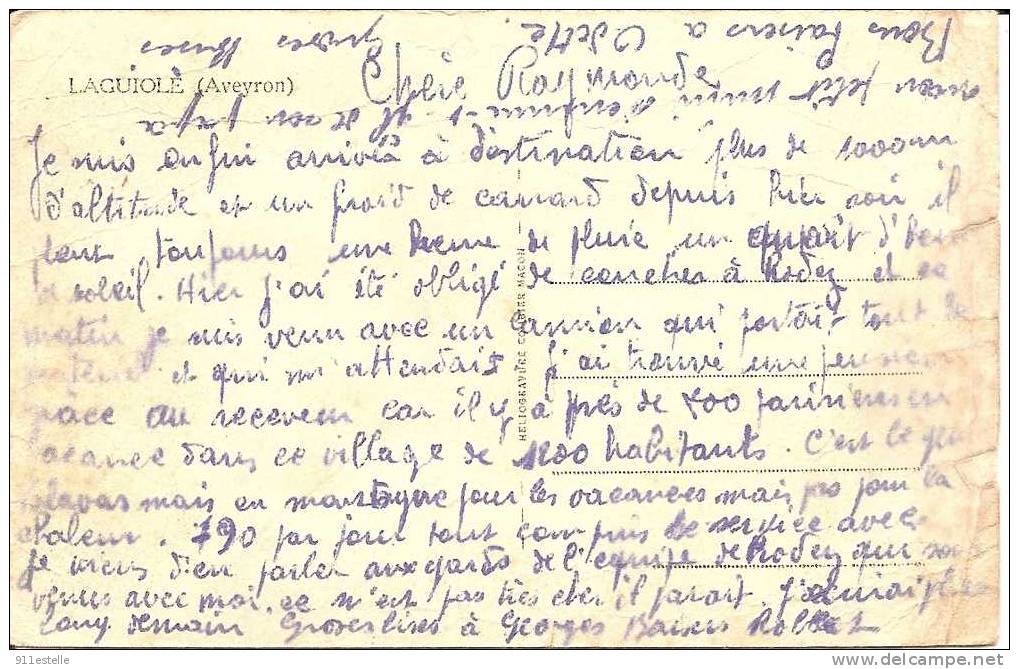 LAGUIOLE (Aveyron)
Chère Raymonde
Je suis enfin arrivée à destination plus de 1000 m
d'altitude et un froid de canard depuis hier soir il
pleut toujours une heure de pluie un quart d'heure
de soleil. Hier j'ai été obligé de coucher à Rodez et ce
matin je suis venu avec un camion qui portait tout le
matériel et qui m'attendait j'ai trouvé une pension
grâce au receveur car il y a près de 700 parisiens en
vacances dans ce village de 1200 habitants. C'est le
mais en montagne pour les vacances mais pas pour la
chaleur. 790 par jour tout compris le service avec
je viens d'en parler aux gards de l'équipe de Rodez qui sont
venus avec moi. ce n'est pas très cher il parait j'écrirai plus
long demain Grosses bises à Georges Baisers Robert
Bons baisers à Odette
grosses bises
mon petit
HELIOGRAVURE COMBIER MACON
911estelle
http://www.delcampe.net